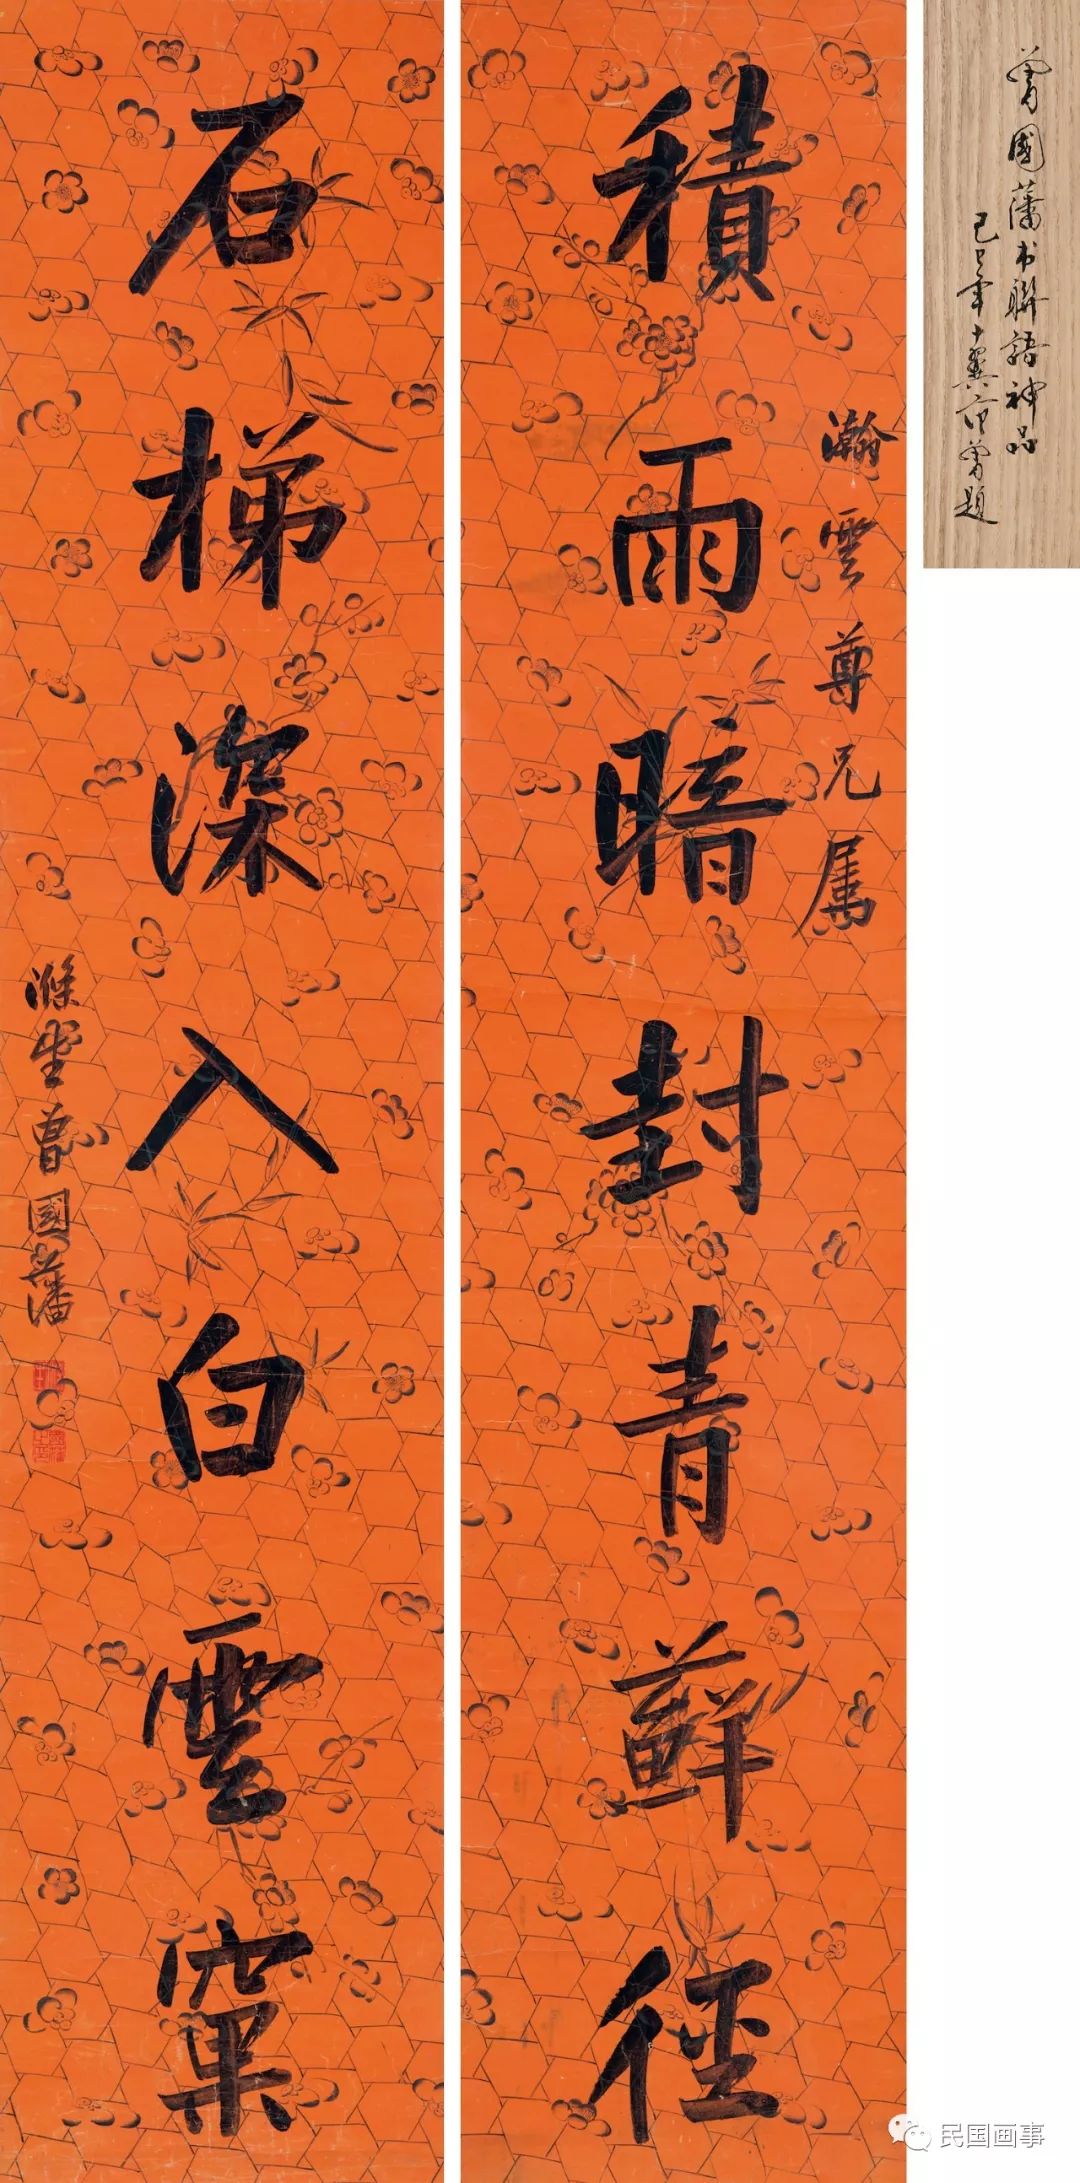 曾國藩书聯語神品
己巳年十翼范曾題
瀚雲尊兄属
積雨暗封青蘚徑
石梯深入白雲窠
滌生曾國藩
民国画事